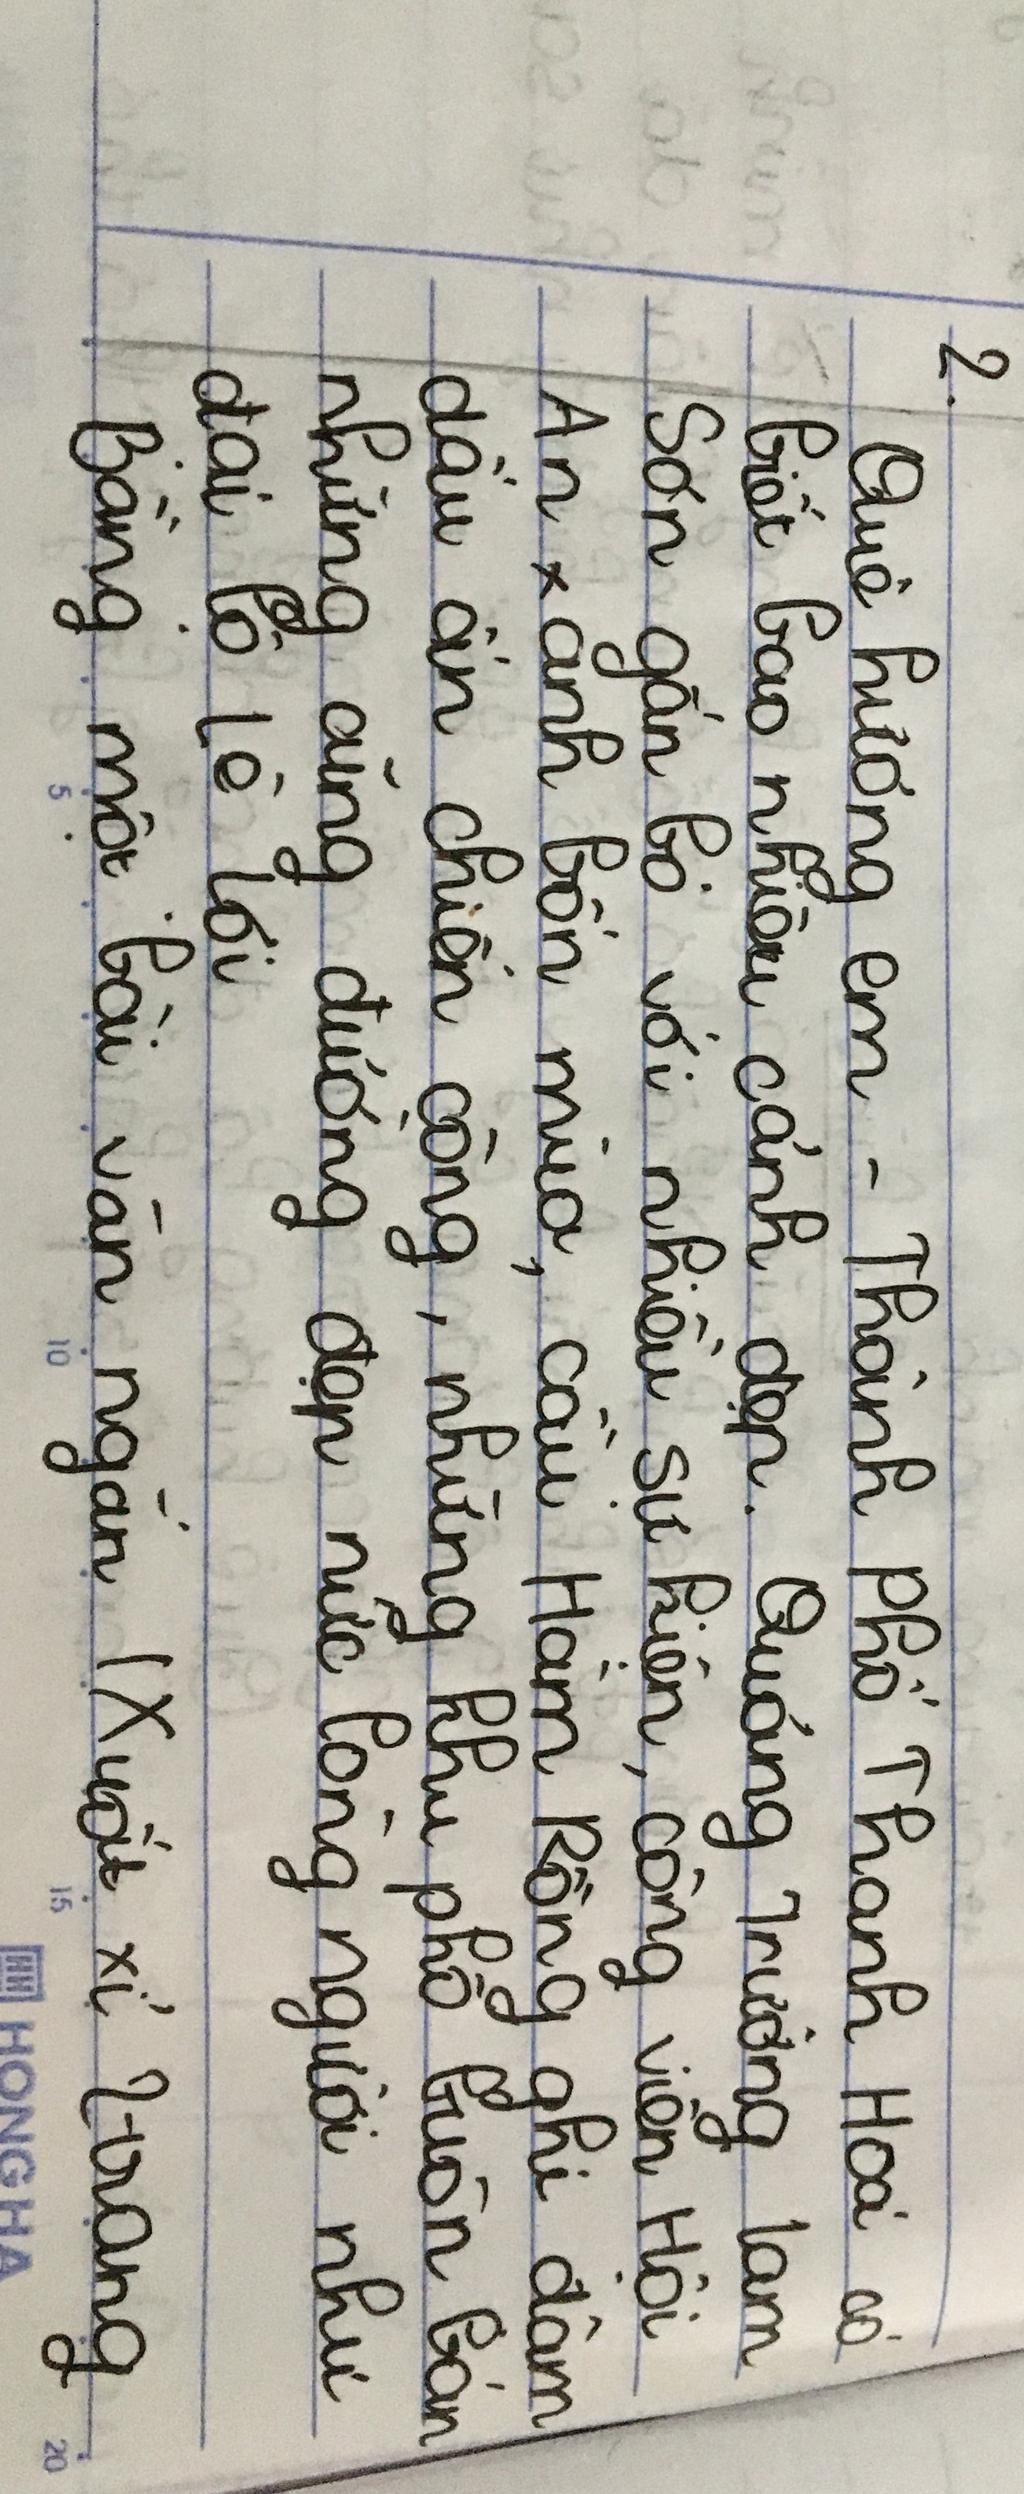 2.
Quê hương em - Thành phố Thanh Hoá có
biết bao nhiêu cảnh đẹp. Quảng Trường lam
Sơn gắn bó với nhiều sự kiện, công viên Hội
An xanh bốn mùa, cầu Hàm Rồng ghi đậm
dấu ấn chiến công, những khu phố buôn bán
những con đường đẹp nức lòng người như
đại lộ Lê lợi
Bằng một bài văn ngắn (Xuất xứ 2 trang
5 10 15 20
HONG HA